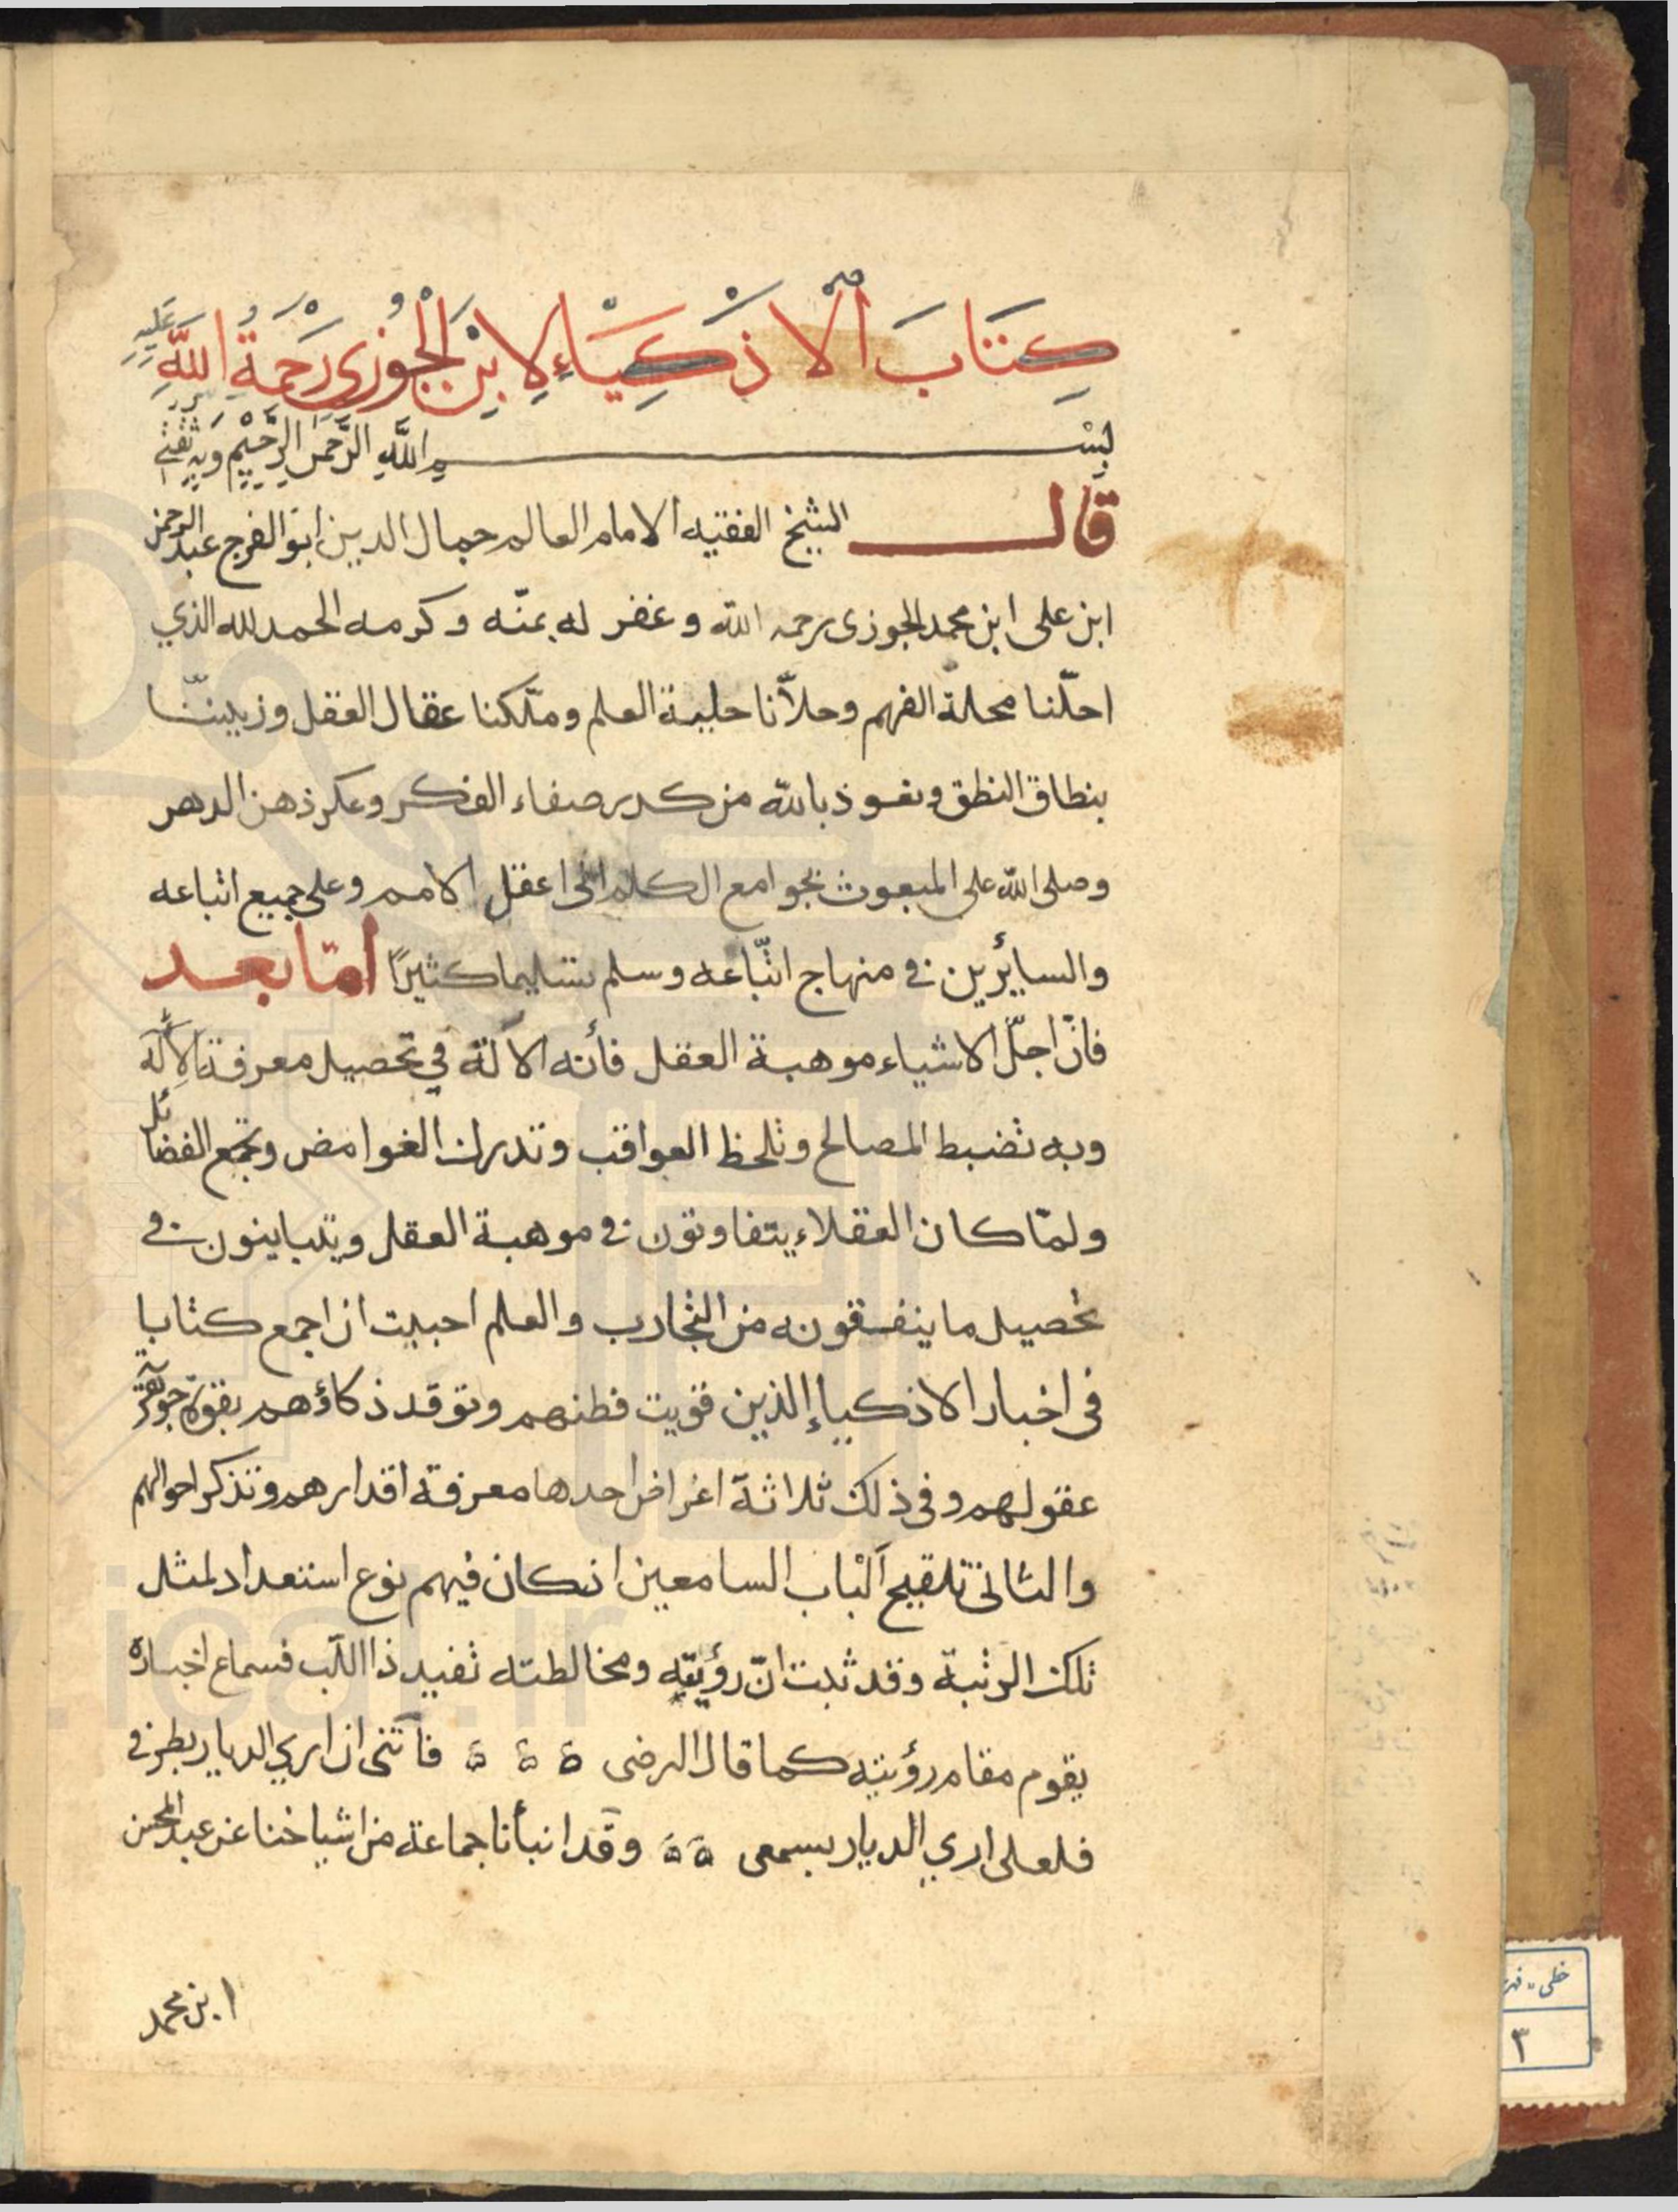 كِتَابَ الْاذْكِيَاءِ لِابْنِ الْجَوْزِي رَحْمَةُ اللَّهِ عَلَيْهِ
بِسْم اللَّهِ الرَّحْمٰنِ الرَّحِيْمِ وَبِهِ ثِقَتِي
قال الشيخ الفقيه الامام العالم جمال الدين ابو الفرج عبد الرحمن
ابن على ابن محمد الجوزى رحمه الله وغفر له بمنّه وكرمه الحمد لله الذي
احلّنا محلة الفهم وحلاّنا حلية العلم وملّكنا عقال العقل وزيننّا
بنطاق النطق ونعوذ بالله من كدر صفاء الفكر وعكر ذهن الدهر
وصلى الله على المبعوث بجوامع الكلم الى اعقل الامم وعلى جميع اتباعه
والسايرين في منهاج اتّباعه وسلم تسليما كثيرًا امّا بعد
فانّ اجلّ الاشياء موهبة العقل فأنه الآلة في تحصيل معرفة الاِلٰه
وبه تضبط المصالح وتلحظ العواقب وتدرك الغوامض وتجمع الفضائل
ولمّا كان العقلاء يتفاوتون في موهبة العقل ويتباينون في
تحصيل ما ينفقونه من التجارب والعلم احببت ان اجمع كتابا
فى اخبار الاذكياء الذين قويت فطنهم وتوقد ذكاؤهم بقوة جوهرية
عقولهم وفى ذلك ثلاثة اغراض احدها معرفة اقدارهم وتذكر احوالهم
والثانى تلقيح اَلْباب السامعين ان كان فيهم نوع استعداد لمثل
تلك الرتبة وقد ثبت انّ رؤيته ومخالطته تفيد ذا اللّب فسماع اخباره
يقوم مقام رؤيته كما قال الرضى ة ة ة فأتنى ان اري الديار بطرفي
فلعلى اري الديار بسمعى ة ة وقد انبأنا جماعة من اشياخنا عن عبد المحسن
ابن محمد
خطى - فهر
٣